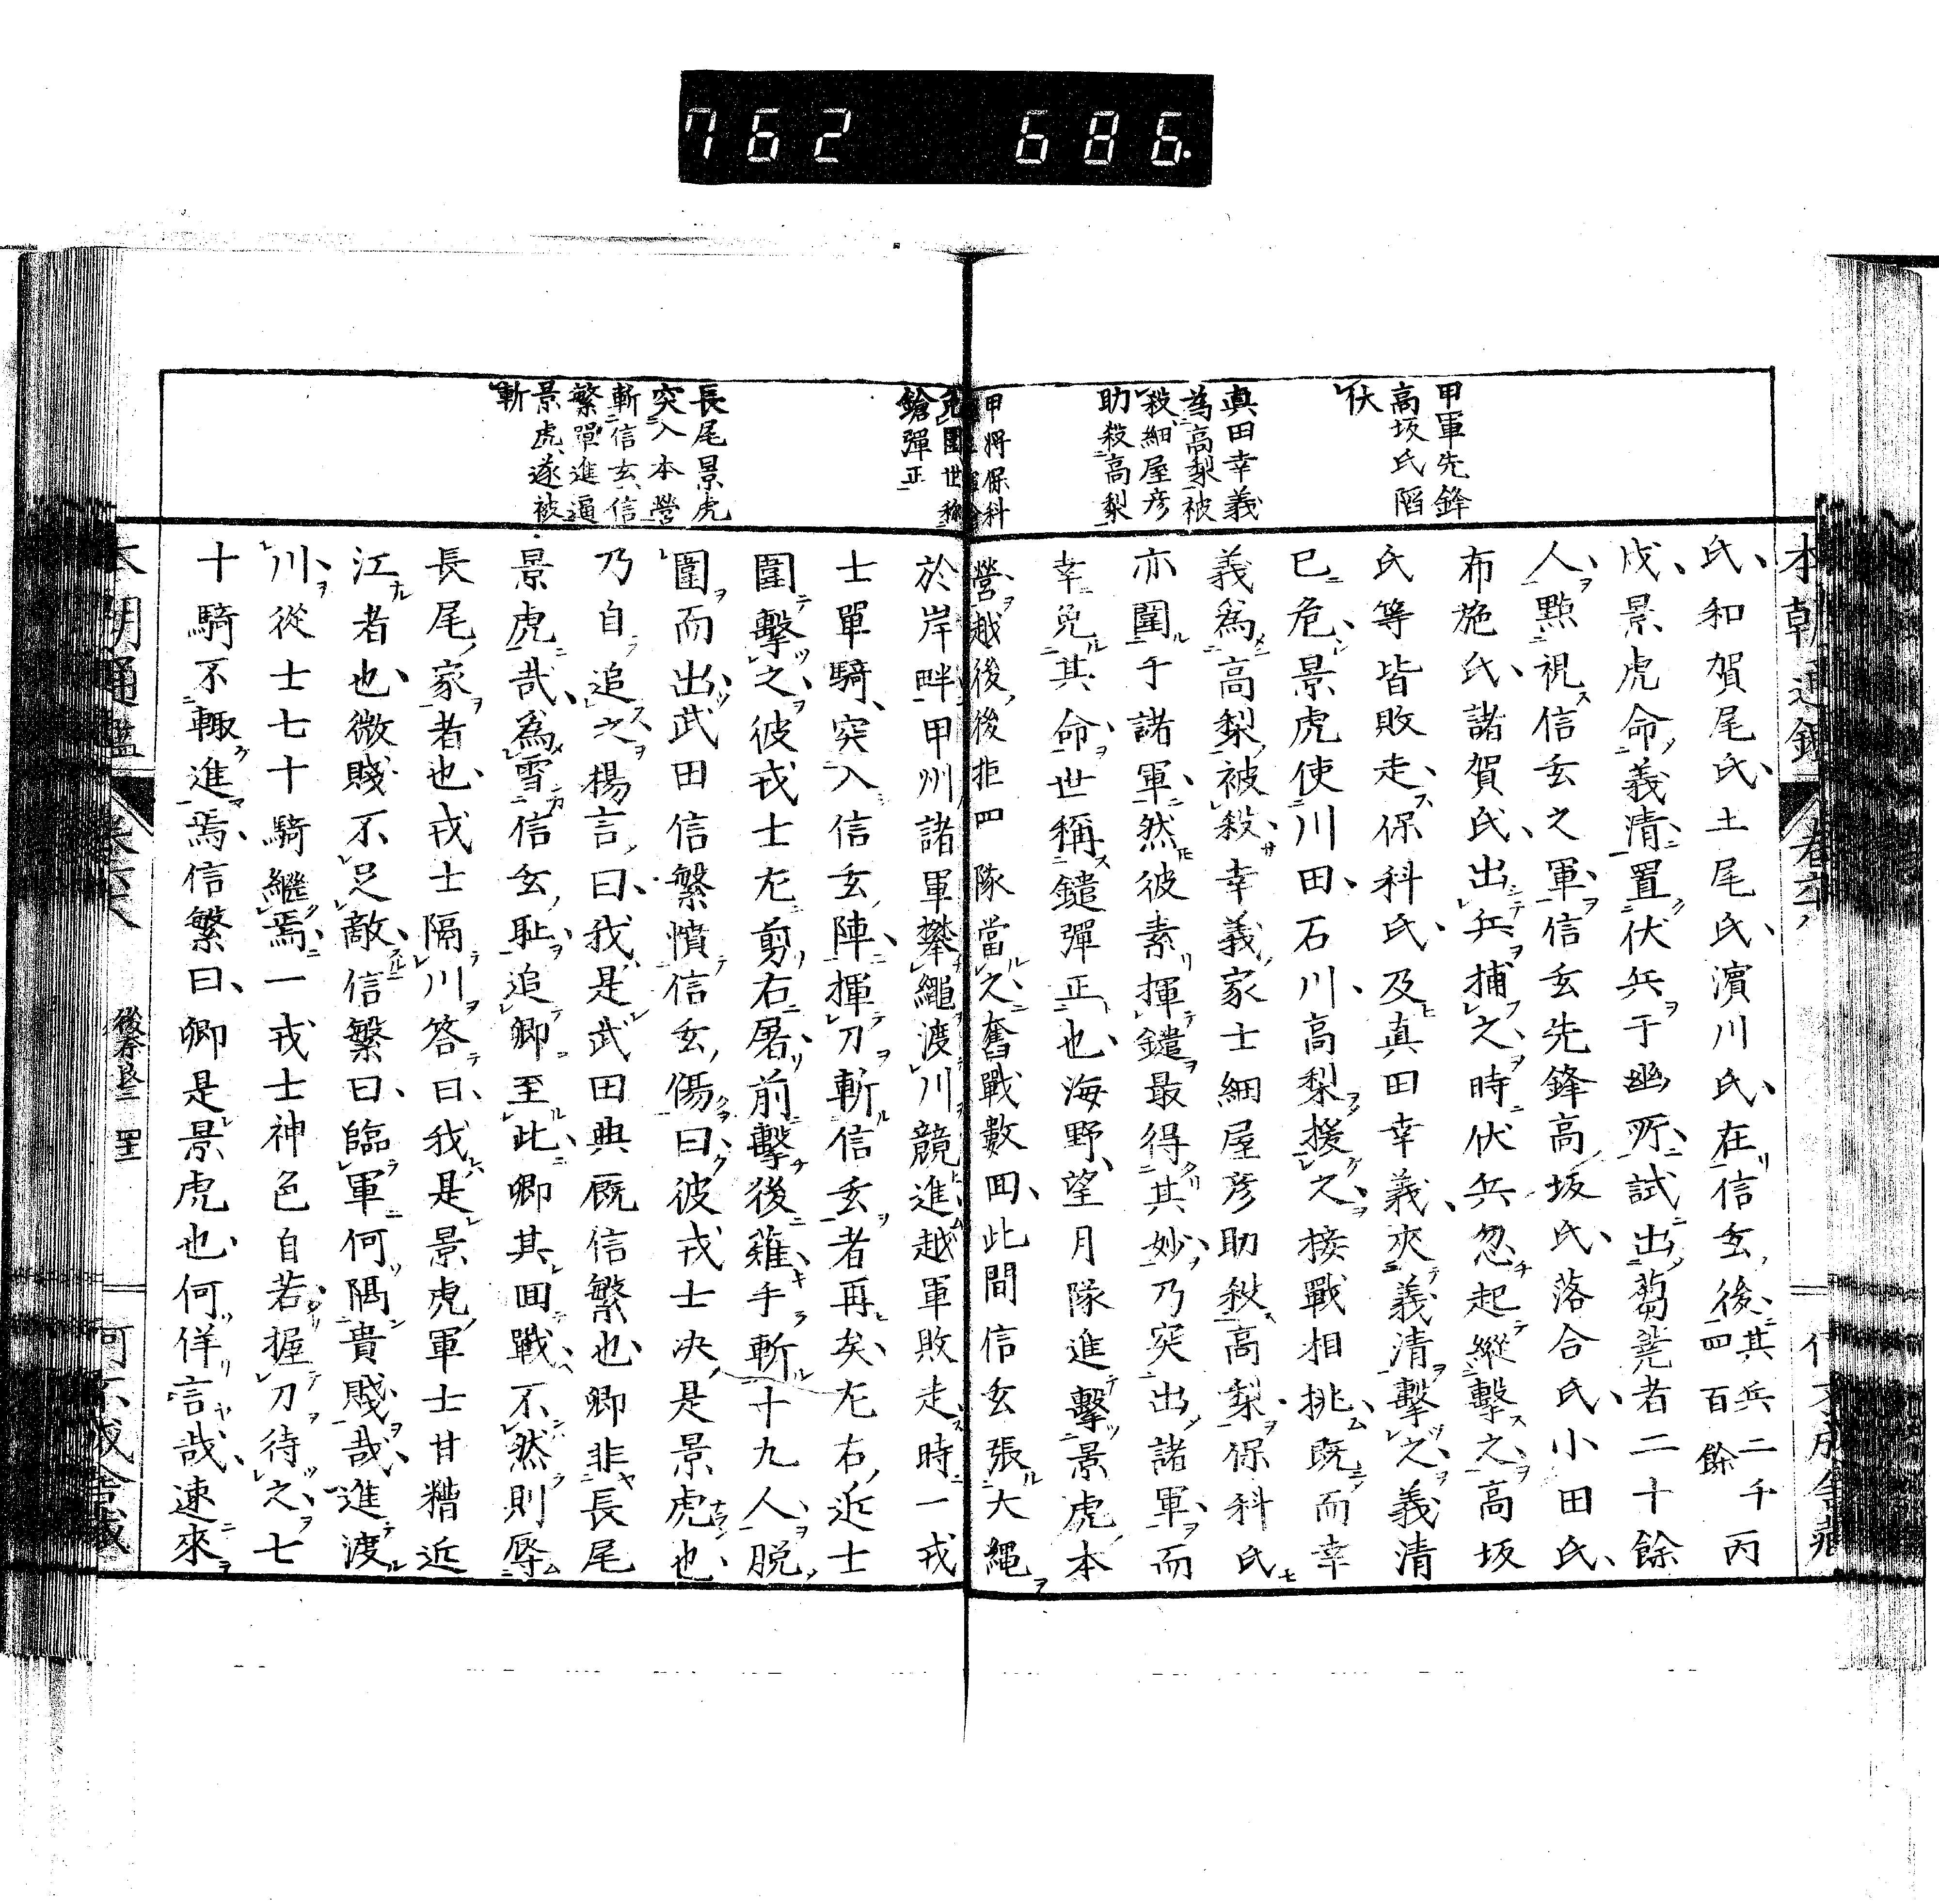 762 686.
甲軍先鋒
高坂氏陷
伏
真田幸義
為高梨被
殺細屋彦
助殺高梨
甲将保科
免圍世称
鎗彈正
長尾景虎
突入本營
斬信玄信
繁單進逼
景虎遂被
斬
氏和賀尾氏土尾氏濱川氏在信玄後其兵二千四百餘丙
戌景虎命義清置伏兵于幽所試出蒭蕘者二十餘
人點視信玄之軍信玄先鋒高坂氏落合氏小田氏
布施氏諸賀氏出兵捕之時伏兵忽起縱擊之高坂
氏等皆敗走保科氏及真田幸義夾義清擊之義清
已危景虎使川田石川高梨援之接戰相挑既而幸
義為高梨被殺幸義家士細屋彦助殺高梨保科氏
亦圍于諸軍然彼素揮鑓最得其妙乃突出諸軍而
幸免其命世稱鑓彈正也海野望月隊進擊景虎本
營越後後拒四隊當之奮戰數回此間信玄張大繩
於岸畔甲州諸軍攀繩渡川競進越軍敗走時一戎
士單騎突入信玄陣揮刀斬信玄者再矣左右近士
圍擊之彼戎士左剪右屠前擊後薙手斬十九人脱
圍而出武田信繁憤信玄傷曰彼戎士決是景虎也
乃自追之揚言曰我是武田典厩信繁也卿非長尾
景虎哉為雪信玄耻追卿至此卿其回戰不然則辱
長尾家者也戎士隔川答曰我是景虎軍士甘糟近
江者也微賤不足敵信繁曰臨軍何隅貴賤哉進渡
川從士七十騎繼焉一戎士神色自若握刀待之七
十騎不輙進焉信繁曰卿是景虎也何佯言哉速來